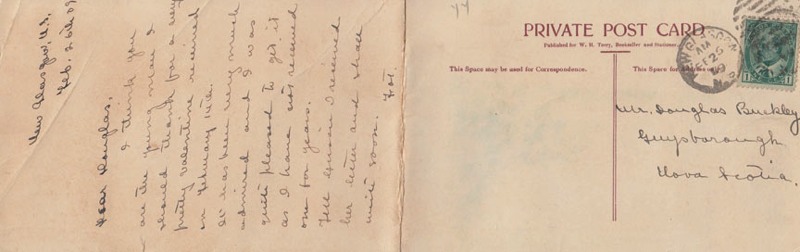 New Glasgow, N.S.
Feb. 26th 09
Dear Douglas.
I think you
are the young man I
should thank for a very
pretty valentine received
on February 14th.
It has been very much
admired and I was
quite pleased to get it
as I have not received
one for years.
Tell I received
her letter and shall
write soon.
PRIVATE POST CARD
Published for W. H. Torey, Bookseller and Stationer.
This Space may be used for Correspondence.
This Space for
AM
FE 26
09
N.S.
1 1
Mr. Douglas Buckley
Guysborough
Nova Scotia.